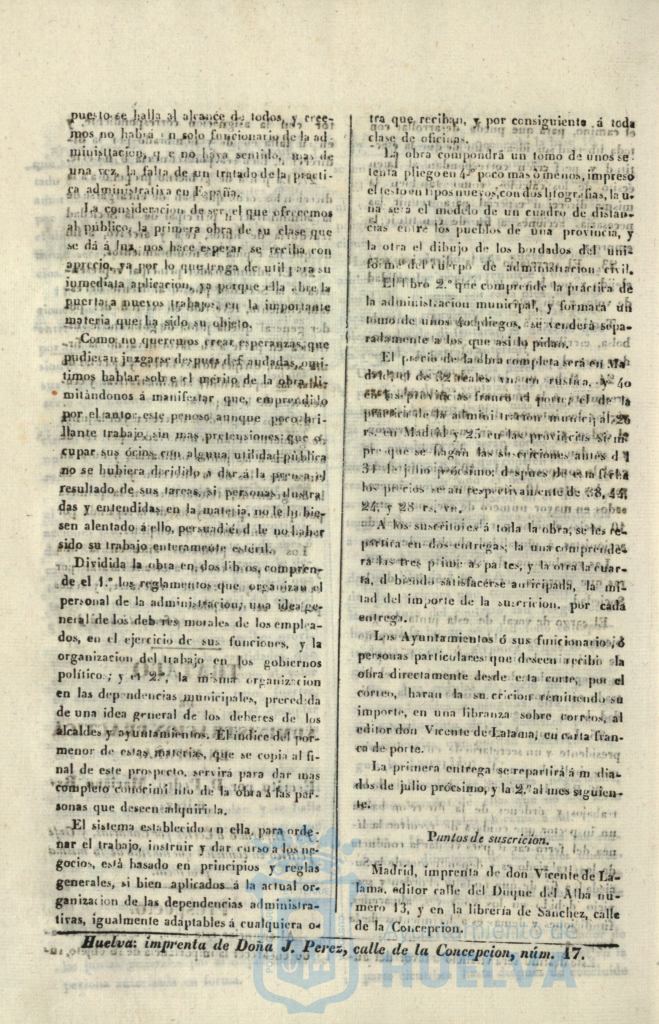 puesto se halla al alcance de todos, y cree-
mos no habrá un solo funcionario de la ad-
ministracion, que no haya sentido, mas de
una vez, la falta de un tratado de la prácti-
ca administrativa en España.
La consideracion de ser, el que ofrecemos
al público, la primera obra de su clase que
se dá á luz, nos hace esperar se reciba con
aprecio, ya por lo que tenga de util para su
inmediata aplicacion, ya porque ella abre la
puerta a nuevos trabajos, en la importante
materia que ha sido su objeto.
Como no queremos crear esperanzas, que
pudieran juzgarse despues defraudadas, omi-
timos hablar sobre el mérito de la obra, li-
mitándonos á manifestar que, emprendido
por el autor este penoso aunque poco bri-
llante trabajo, sin mas pretensiones que o-
cupar sus ócios con alguna utilidad pública
no se hubiera decidido a dar á la prensa el
resultado de sus tareas, si personas ilustra-
das y entendidas en la materia, no le hubie-
sen alentado á ello, persuadiéndole no haber
sido su trabajo enteramente estéril.
Dividida la obra en dos libros, compren-
de el 1.º los reglamentos que organizan el
personal de la administracion; una idea ge-
neral de los deberes morales de los emplea-
dos, en el ejercicio de sus funciones, y la
organizacion del trabajo en los gobiernos
político; y el 2.º, la misma organizacion
en las dependencias municipales, precedida
de una idea general de los deberes de los
alcaldes y ayuntamientos. El índice del por-
menor de estas materias, que se copia al fi-
nal de este prospecto, servirá para dar mas
completo conocimiento de la obra á las per-
sonas que deseen adquirirla.
El sistema establecido en ella, para orde-
nar el trabajo, instruir y dar curso a los ne-
gocios, está basado en principios y reglas
generales, si bien aplicados á la actual or-
ganizacion de las dependencias administra-
tivas, igualmente adaptables á cualquiera o-
tra que reciban, y por consiguiente á toda
clase de oficinas.
La obra compondrá un tomo de unos se-
tenta pliegos en 4.º poco mas ó menos, impreso
el testo en tipos nuevos, con dos litografias, la u-
na será el modelo de un cuadro de distan-
cias entre los pueblos de una provincia, y
la otra el dibujo de los bordados del uni-
forme del cuerpo de administracion civil.
El libro 2.º que comprende la práctica de
la administracion municipal, y formará un
tomo de unos 40 pliegos, se venderá sepa-
radamente a los que asi lo pidan.
El precio de la obra completa será en Ma-
drid el de 32 reales vn. en rústica, y 40
en las provincias franco el porte; el de la
práctica de la administracion municipal 20
rs. en Madrid y 25 en las provincias siem-
pre que se hagan las suscriciones antes del
31 de julio prócsimo; despues de esta fecha
los precios serán respectivamente de 38, 44,
24, y 28 rs. vn.
A los suscritores á toda la obra, se les re-
partirá en dos entregas; la una comprende-
rá las tres primeras partes, y la otra la cuar-
ta, debiendo satisfacerse anticipada, la mi-
tad del importe de la suscricion, por cada
entrega.
Los Ayuntamientos ó sus funcionarios, ó
personas particulares que deseen recibir la
obra directamente desde esta corte, por el
correo, haran la suscricion remitiendo su
importe, en una libranza sobre correos, al
editor don Vicente de Lalama, en carta fran-
ca de porte.
La primera entrega se repartirá á media-
dos de julio prócsimo, y la 2.ª al mes siguien-
te.
Puntos de suscricion.
Madrid, imprenta de don Vicente de La-
lama, editor calle del Duque del Alba nú-
mero 13, y en la librería de Sanchez, calle
de la Concepcion.
Huelva: imprenta de Doña J. Perez, calle de la Concepcion, núm. 17.
Ayuntamiento de
HUELVA